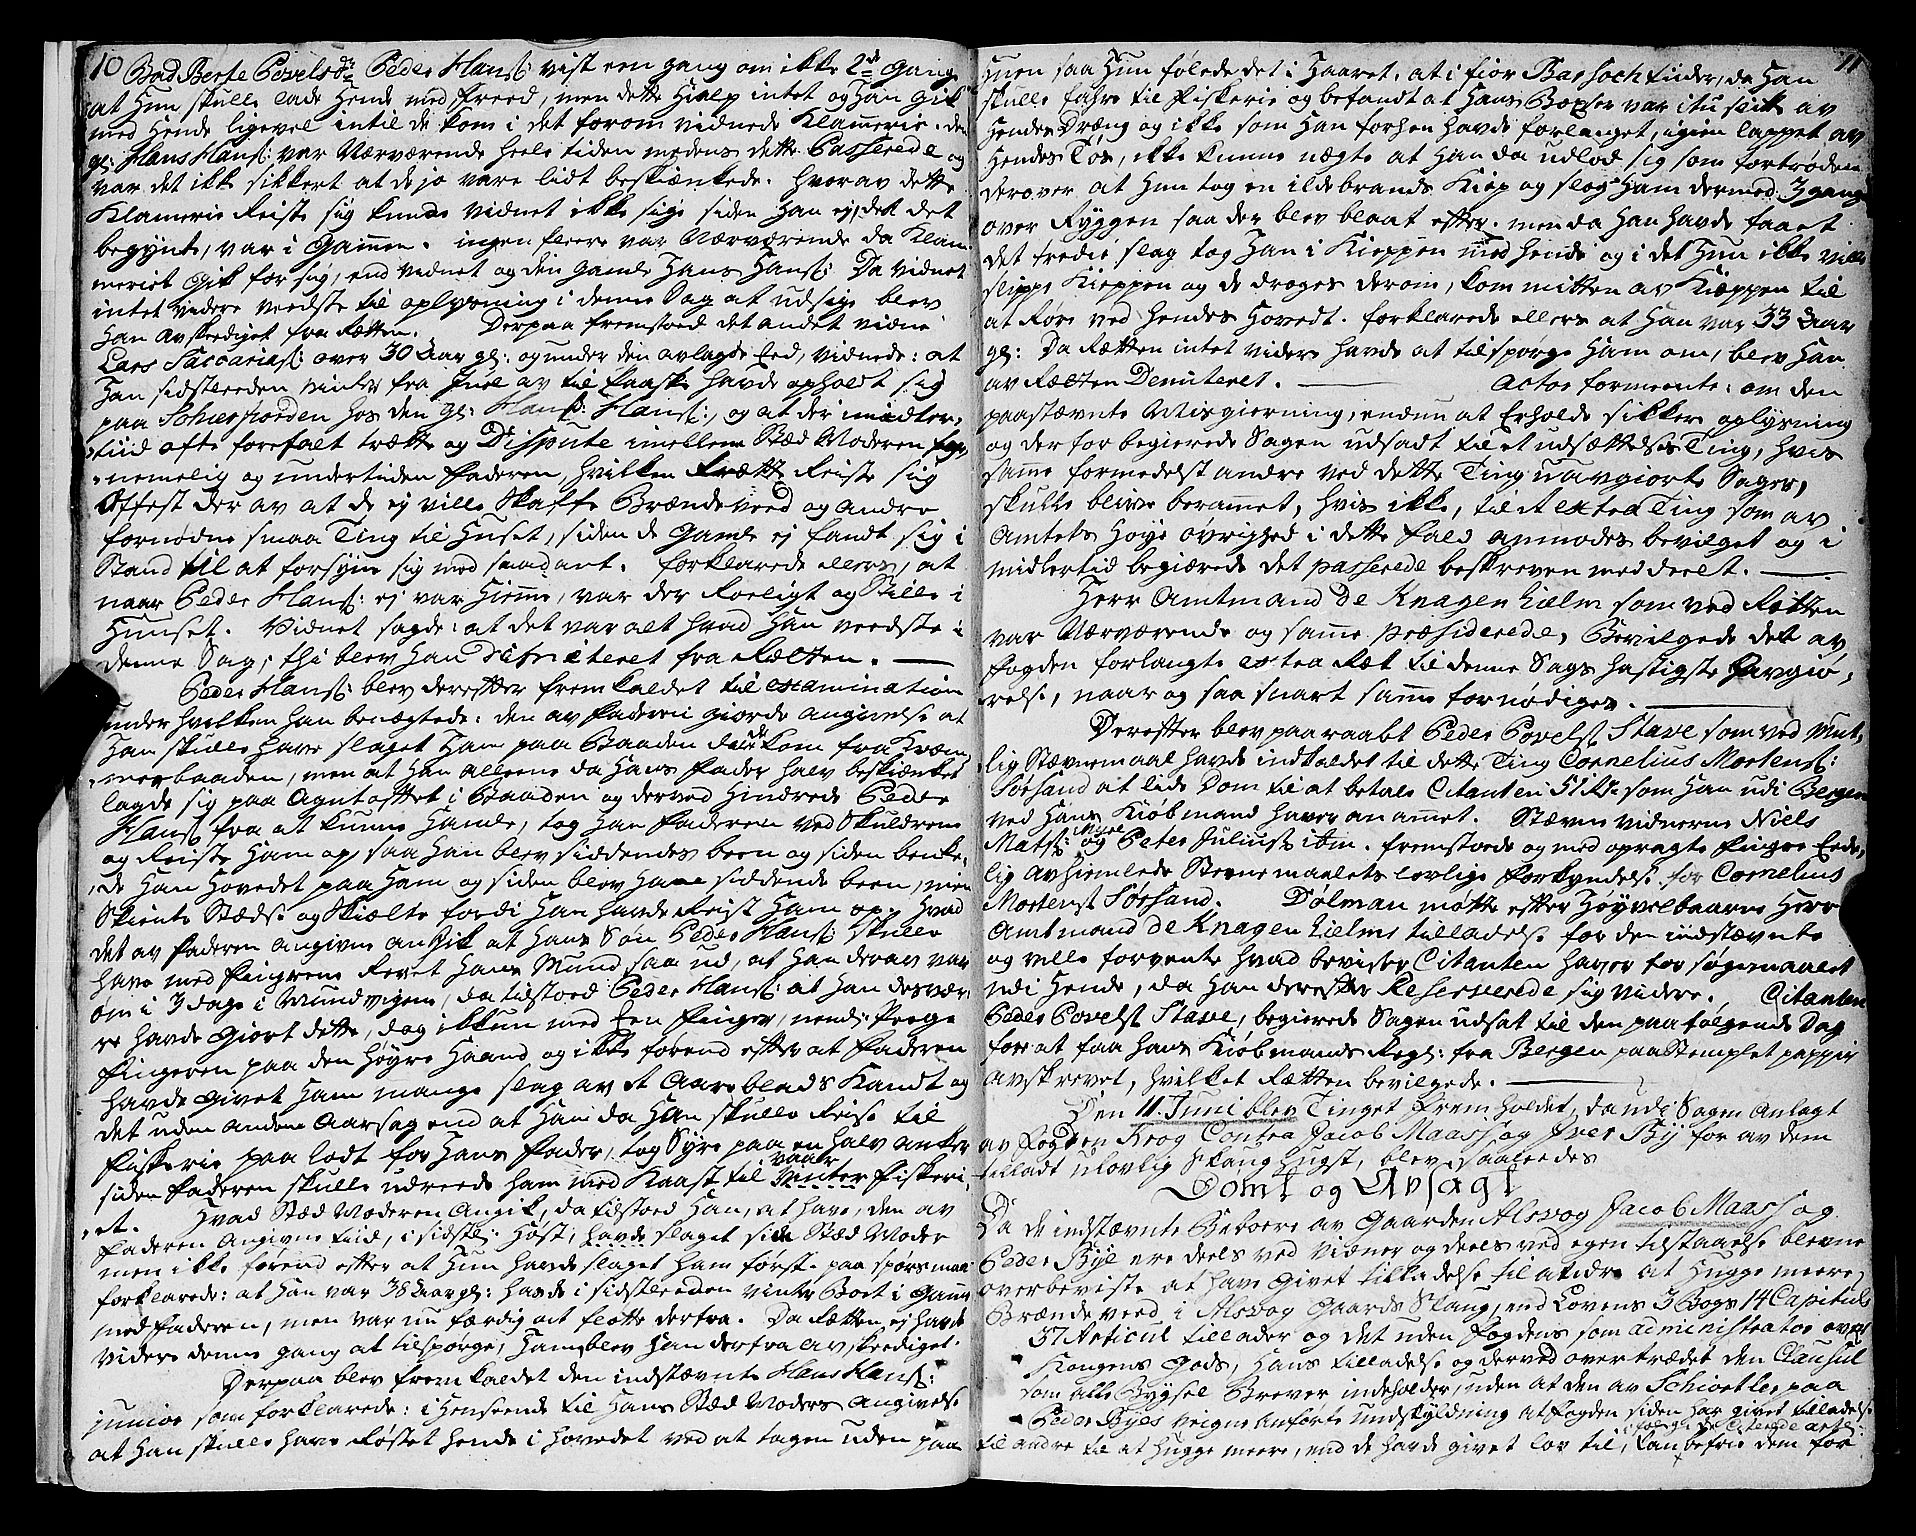 10
Bad Berte Povelsdr Peder Hans: vist een gang om ikke 2de Gange
at Hun skulle lade Hende med freed, men dette Hialp intet og Han gik
med Hende ligevel intil de kom i det forom vidnede Klamerie. den
gl: Hans Hans: var Nærværende heele tiden medens dette Passerede og
var det ikke sikkert at de jo vare lidt beskiænkede. hvorav dette
Klamerie Reiste sig kunde vidnet ikke sige siden Han ej, det det
begynte, var i Gammen. ingen fleere var Nærværende da Klam
meriet gik for sig, end vidnet og den gamle Hans Hans: Da vidnet
intet videre veedste til oplysning i denne Sag at udsige blev
Han avskediget fra Retten. Derpaa fremstoed det andet vidne
Lars Saccarias: over 30 Aar gl: og under den avlagde Eed, vidnede: at
Han sidstleeden vinter fra Juel av til Paaske havde opholdt sig
paa hos den gl: Hans: Hans:, og at der imidler,
tiid ofte forefalt trætte og Dispute imellem Stæd Moderen for,
nemelig og undertiden Faderen, hvilken trætte Reiste sig
oftest der av at de ej ville Skaffe Brændeveed og andre
fornødne smaa Ting til Huset, siden de Gamle ej fandt sig i
Stand til at forsyne sig med saadant. forklarede ellers, at
naar Peder Hans: ej var Hiemme, var der Roeligt og Stille i
Huuset. Vidnet sagde: at det var alt hvad Han veedste i
denne Sag, thi blev Han dimiteret fra Retten.
Peder Hans: blev derefter fremkaldet til examination
under hvilken han benægtede: den av Faderen giorde angivelse at
Han skulle have slaget Ham paa Baaden da de kom fra Kræm
merbaaden, men at Han alleene da Hans Fader halv beskiænket
lagde sig paa Agntoftet i Baaden og derved Hindrede Peder
Hans: fra at kunne Hamle, tog Han Faderen ved Skuldrene
og Reiste Ham op, saa Han blev siddendes been og siden benke,
de Han Hovedet paa Ham og siden blev Hand siddende been, men
Skiente Stædse og Skiælte fordi Han havde Reist Ham op. Hvad
det av Faderen angivne angik at Hans Søn Peder Hans: skulle
have med Fingrene Revet Hans Mund saa ud, at Han derav var
øm i 3 dage i Mundvigene, da tilstoed Peder Hans: at Han desvær
re havde giort dette, dog ikkun med Een Finger, nemlig Pege
Fingeren paa den Høyre Haand og ikke forend efter at Faderen
havde givet Ham mange slag av et Aareblads Kandt og
det uden anden Aarsag end at Han da Han skulle Reise til
Fiskerie paa lodt for Hans Fader, tog Syre paa en halv Anker
vaar
siden Faderen skulle udreede ham med Kaast til Vinter Fiskeri
et. Hvad Stæd Moderen Angik, da tilstoed Han, at have, den av
Faderen Angivne tiid, i sidstl: Høst, havde slaget sin Stæd Moder
men ikke forend efter at Hun havde slaget Ham først. paa spørsmaal
forklarede: at Han var 38 Aar gl: havde i sidstleeden vinter Boet i Gamme
med Faderen, men var nu færdig at fløtte derfra. Da Retten ej havde
videre denne gang at tilspørge, Ham blev Han derfra avskediget.
Derpaa blev frem kaldet den indstævnte Hans Hans:
junior som forklarede: i Henseende til Hans Stæd Moders Angivelse
at Han skulle have Røstet Hende i Hovedet ved at tagen uden paa
11
Huen saa Hun følede det i Haaret, at i fior Barsoch tiider, da Han
skulle fahre til Fiskerie og befandt at Hans Boxser var itu slidt av
Hendes Dræng og ikke som Han forhen havde forlanget, igien lappet av
Hendes Tøs, ikke kunne nægte at Han da udlod sig som fortrøden
derover at Hun tog en ildebrands Kiep og slog Ham dermed 3 gange
over Ryggen saa der blev blaat efter. men da Han havde faaet
det tredie slag tog Han i Kieppen med Hende og i det Hun ikke ville
slippe Kieppen og de droges derom, kom mitten av Kieppen til
at Røre ved Hendes Hovedt. forklarede ellers at Han var 33 Aar
gl: Da Retten intet videre havde at tilspørge Ham om, blev Han
av Retten Demiteret. Actor formeente: om den
paastævnte Misgierning, endnu at Erholde sikker oplysning
og der for begierede Sagen udsadt til et udsættelses Ting, hvis
same formedelst andre ved dette Ting uavgiorte Sager,
skulle blive berammet, hvis ikke, til et extra Ting som av
Amtets Høye øvrighed i dette fald anmodes bevilget og i
midlertid begiærede det passerede beskreven meddeelt.
Herr Amtmand De Knagenhielm som ved Retten
var Nærværende og samme præsiderede, Bevilgede det av
Fogden forlangte extra Ret til denne Sags hastigste avgiø,
relse, naar og saa snart samme fornødiges.
Derefter blev paaraabt Peder Povels: Stave som ved Mut,
lig Stævnemaal havde indkaldet til dette Ting Cornelius Mortens:
Sørsand at lide Dom til at betale Citanten 51 som Han udi Bergen
ved Hans Kiøbmand haver anammet. Stævne vidnerne Niels
Mats: og Peter Julius: ibm. fremstoede og med opragte Fingre Eede,
lig avhiemlede Stevnemaalets lovlige forkyndelse for Cornelius
Mortens: Sørsand. Dølman møtte efter Høyvelbaarne Herr
Amtmand de Knagenhielms tilladelse for den indstævnte
og ville forvente hvad beviser Citanten haver for søgemaalet
udi Hende, da Han derefter Reserverede sig videre. Citanten
Peder Povels: Stave, begierede Sagen udsat til den paafølgende Dag
for at faa Hans Kiøbmands Regl: fra Bergen paa Stemplet pappiir
avskrevet, hvilket Retten bevilgede.
Den 11. Juni blev Tinget frem holdet, da udi Sagen Anlagt
av Fogden Krog Contra Jacob Maass og Iver By for av dem
tilladt ulovlig Skoug Hugst, blev saaleedes
Dømt og Avsagt
Da de indstævnte Beboere av Gaarden Alsvog Jacob Maass og
Peder Bye ere deels ved vidner og deels ved egen tilstaaelse blevne
overbeviste at have givet tilladelse til at Hugge meere
Brændeveed i Alsvog Gaards Skoug, end Lovens 3 Bogs 14 Capituls
37 Articul tillader og det uden Fogdens som administrator over
Kongens Gods, Hans tilladelse og derved overtrædet den Clausul
som alle Bygsel Brever indeholder, uden at den av Schiøtler paa
Peder Byes veigne anførte undskyldning at Fogden siden har givet tilladelse
i følge den Citerede art:
til andre til at Hugge meere, end de havde givet lov til, kan befrie dem for